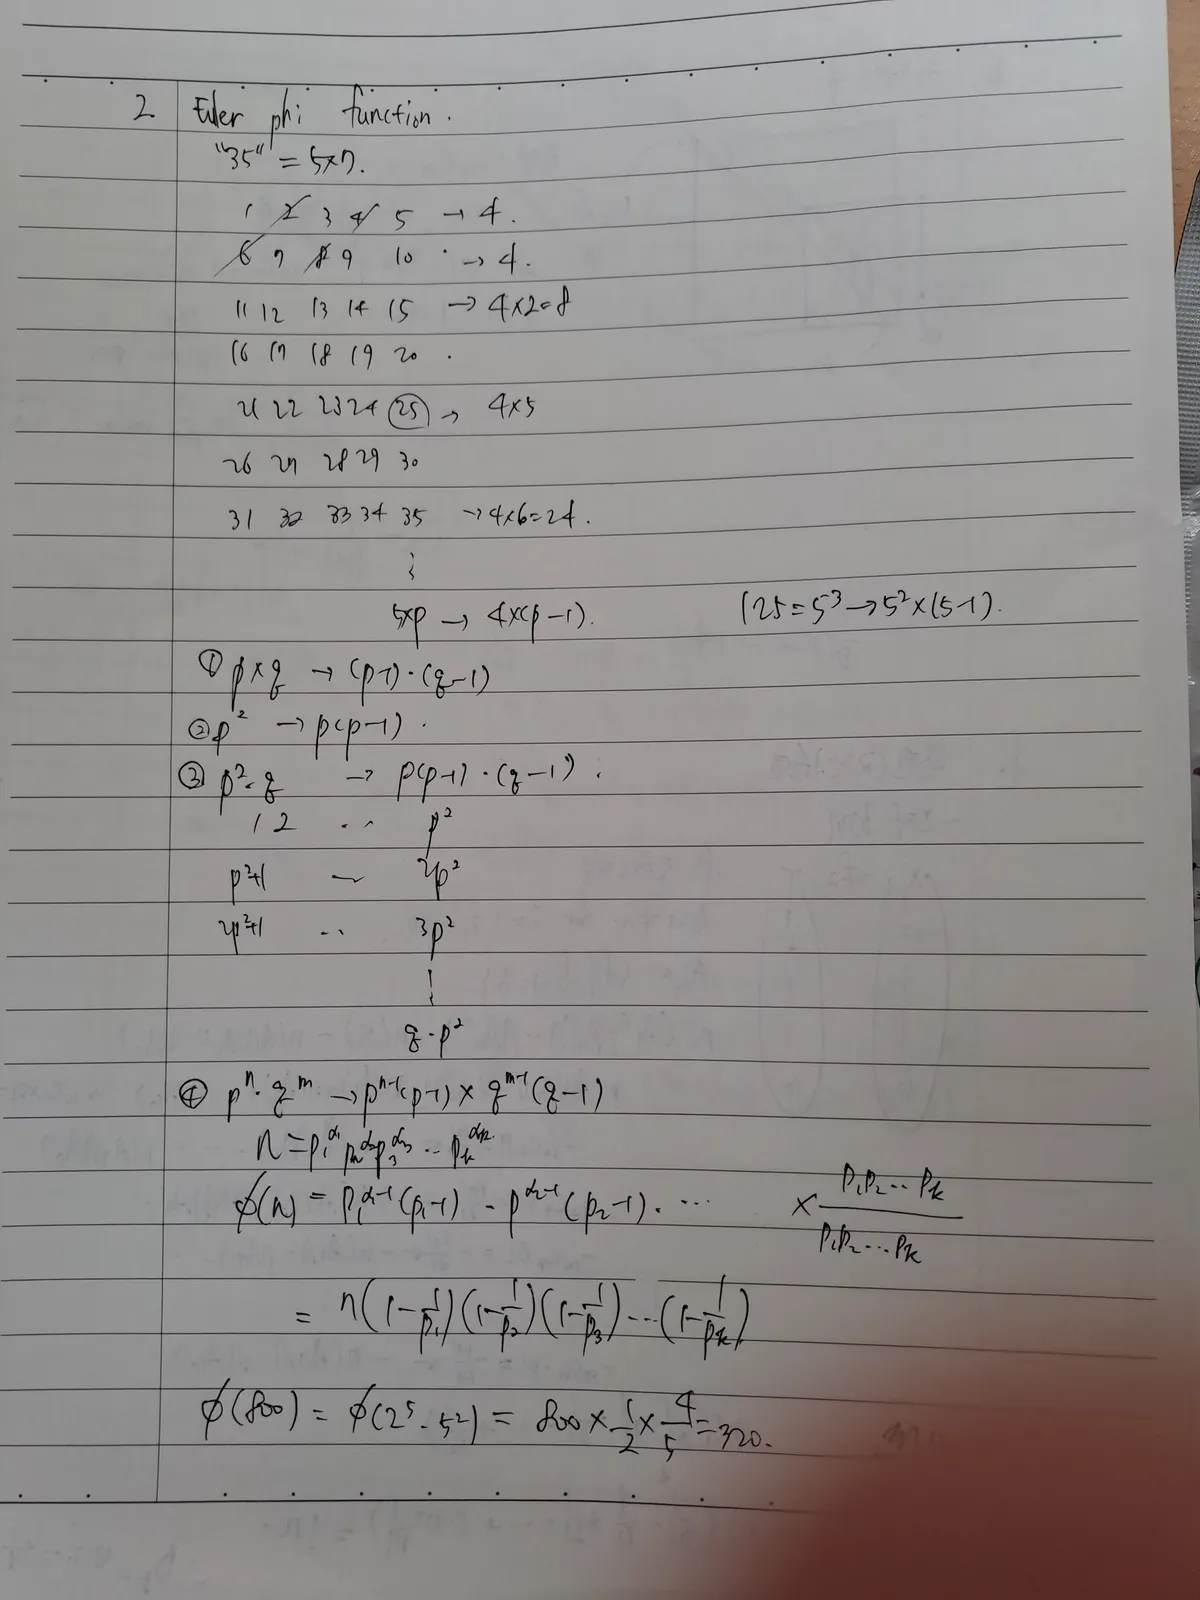 2 Euler phi function.
"35" = 5×7.
1 2 3 4 5 → 4.
6 7 8 9 10 → 4.
11 12 13 14 15 → 4×2=8
16 17 18 19 20
21 22 23 24 25 → 4×5
26 27 28 29 30
31 32 33 34 35 → 4×6=24.
⋮
5×p → 4×(p-1). 125=5³→5²×(5-1).
① p×q → (p-1)·(q-1)
② p² → p(p-1).
③ p²·q → p(p-1)·(q-1).
1 2 ‥ p²
p²+1 ~ 2p²
2p²+1 ‥ 3p²
⋮
q·p²
④ pⁿ·qᵐ → pⁿ⁻¹(p-1) × qᵐ⁻¹(q-1)
n = p₁^α₁ p₂^α₂ p₃^α₃ ‥ pₖ^αₖ
ϕ(n) = p₁^α₁-1 (p₁-1) · p^α₂-1 (p₂-1). ⋯ × p₁p₂‥pₖ / p₁p₂⋯pₖ
= n(1-1/p₁)(1-1/p₂)(1-1/p₃)⋯(1-1/pₖ)
ϕ(800) = ϕ(2⁵·5²) = 800 × 1/2 × 4/5 = 320.